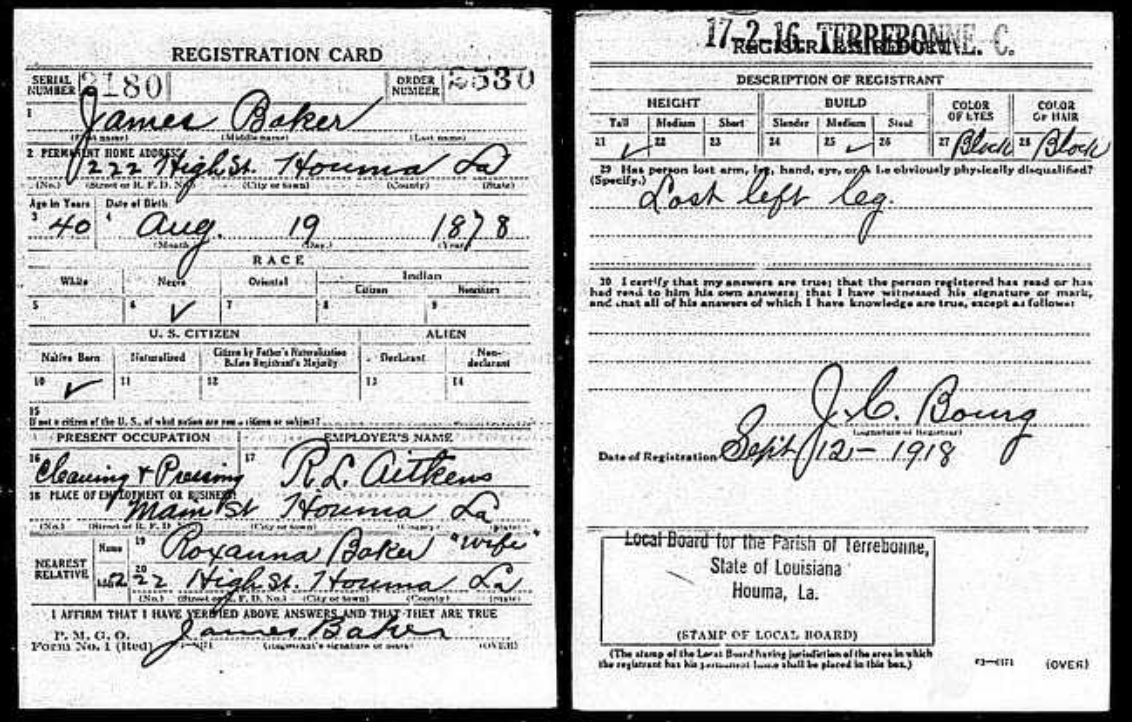 REGISTRATION CARD
SERIAL NUMBER 2180 ORDER NUMBER 2530
1 James Baker
(First name) (Middle name) (Last name)
2 PERMANENT HOME ADDRESS:
222 High St. Houma La
(No.) (Street or R. F. D. No.) (City or town) (County) (State)
Age in Years Date of Birth
3 40 4 Aug. 19 1878
(Month) (Day) (Year)
RACE
White Negro Oriental Indian
Citizen Noncitizen
5 6 ✓ 7 8 9
U. S. CITIZEN ALIEN
Native Born Naturalized Citizen by Father's Naturalization Before Registrant's Majority Declarant Non-declarant
10 ✓ 11 12 13 14
15
If not a citizen of the U. S., of what nation are you a citizen or subject?
PRESENT OCCUPATION EMPLOYER'S NAME
16 Cleaning + Pressing 17 R. L. Aitkens
18 PLACE OF EMPLOYMENT OR BUSINESS:
Main St Houma La
(No.) (Street or R. F. D. No.) (City or town) (County) (State)
NEAREST RELATIVE Name 19 Roxanna Baker "wife"
Address 20 222 High St. Houma La
(No.) (Street or R. F. D. No.) (City or town) (County) (State)
I AFFIRM THAT I HAVE VERIFIED ABOVE ANSWERS AND THAT THEY ARE TRUE
P. M. G. O.
Form No. 1 (Red) James Baker
(Registrant's signature or mark) (OVER)
17-2-16 TERREBONNE. C.
REGISTRAR'S REPORT
DESCRIPTION OF REGISTRANT
HEIGHT BUILD COLOR OF EYES COLOR OF HAIR
Tall Medium Short Slender Medium Stout
21 ✓ 22 23 24 25 ✓ 26 27 Black 28 Black
29 Has person lost arm, leg, hand, eye, or is he obviously physically disqualified?
(Specify.) Lost left leg.
30 I certify that my answers are true; that the person registered has read or has
had read to him his own answers; that I have witnessed his signature or mark,
and that all of his answers of which I have knowledge are true, except as follows:
J. C. Bourg
(Signature of Registrar)
Date of Registration Sept 12 - 1918
Local Board for the Parish of Terrebonne,
State of Louisiana
Houma, La.
(STAMP OF LOCAL BOARD)
(The stamp of the Local Board having jurisdiction of the area in which
the registrant has his permanent home shall be placed in this box.)
03—6171 (OVER)